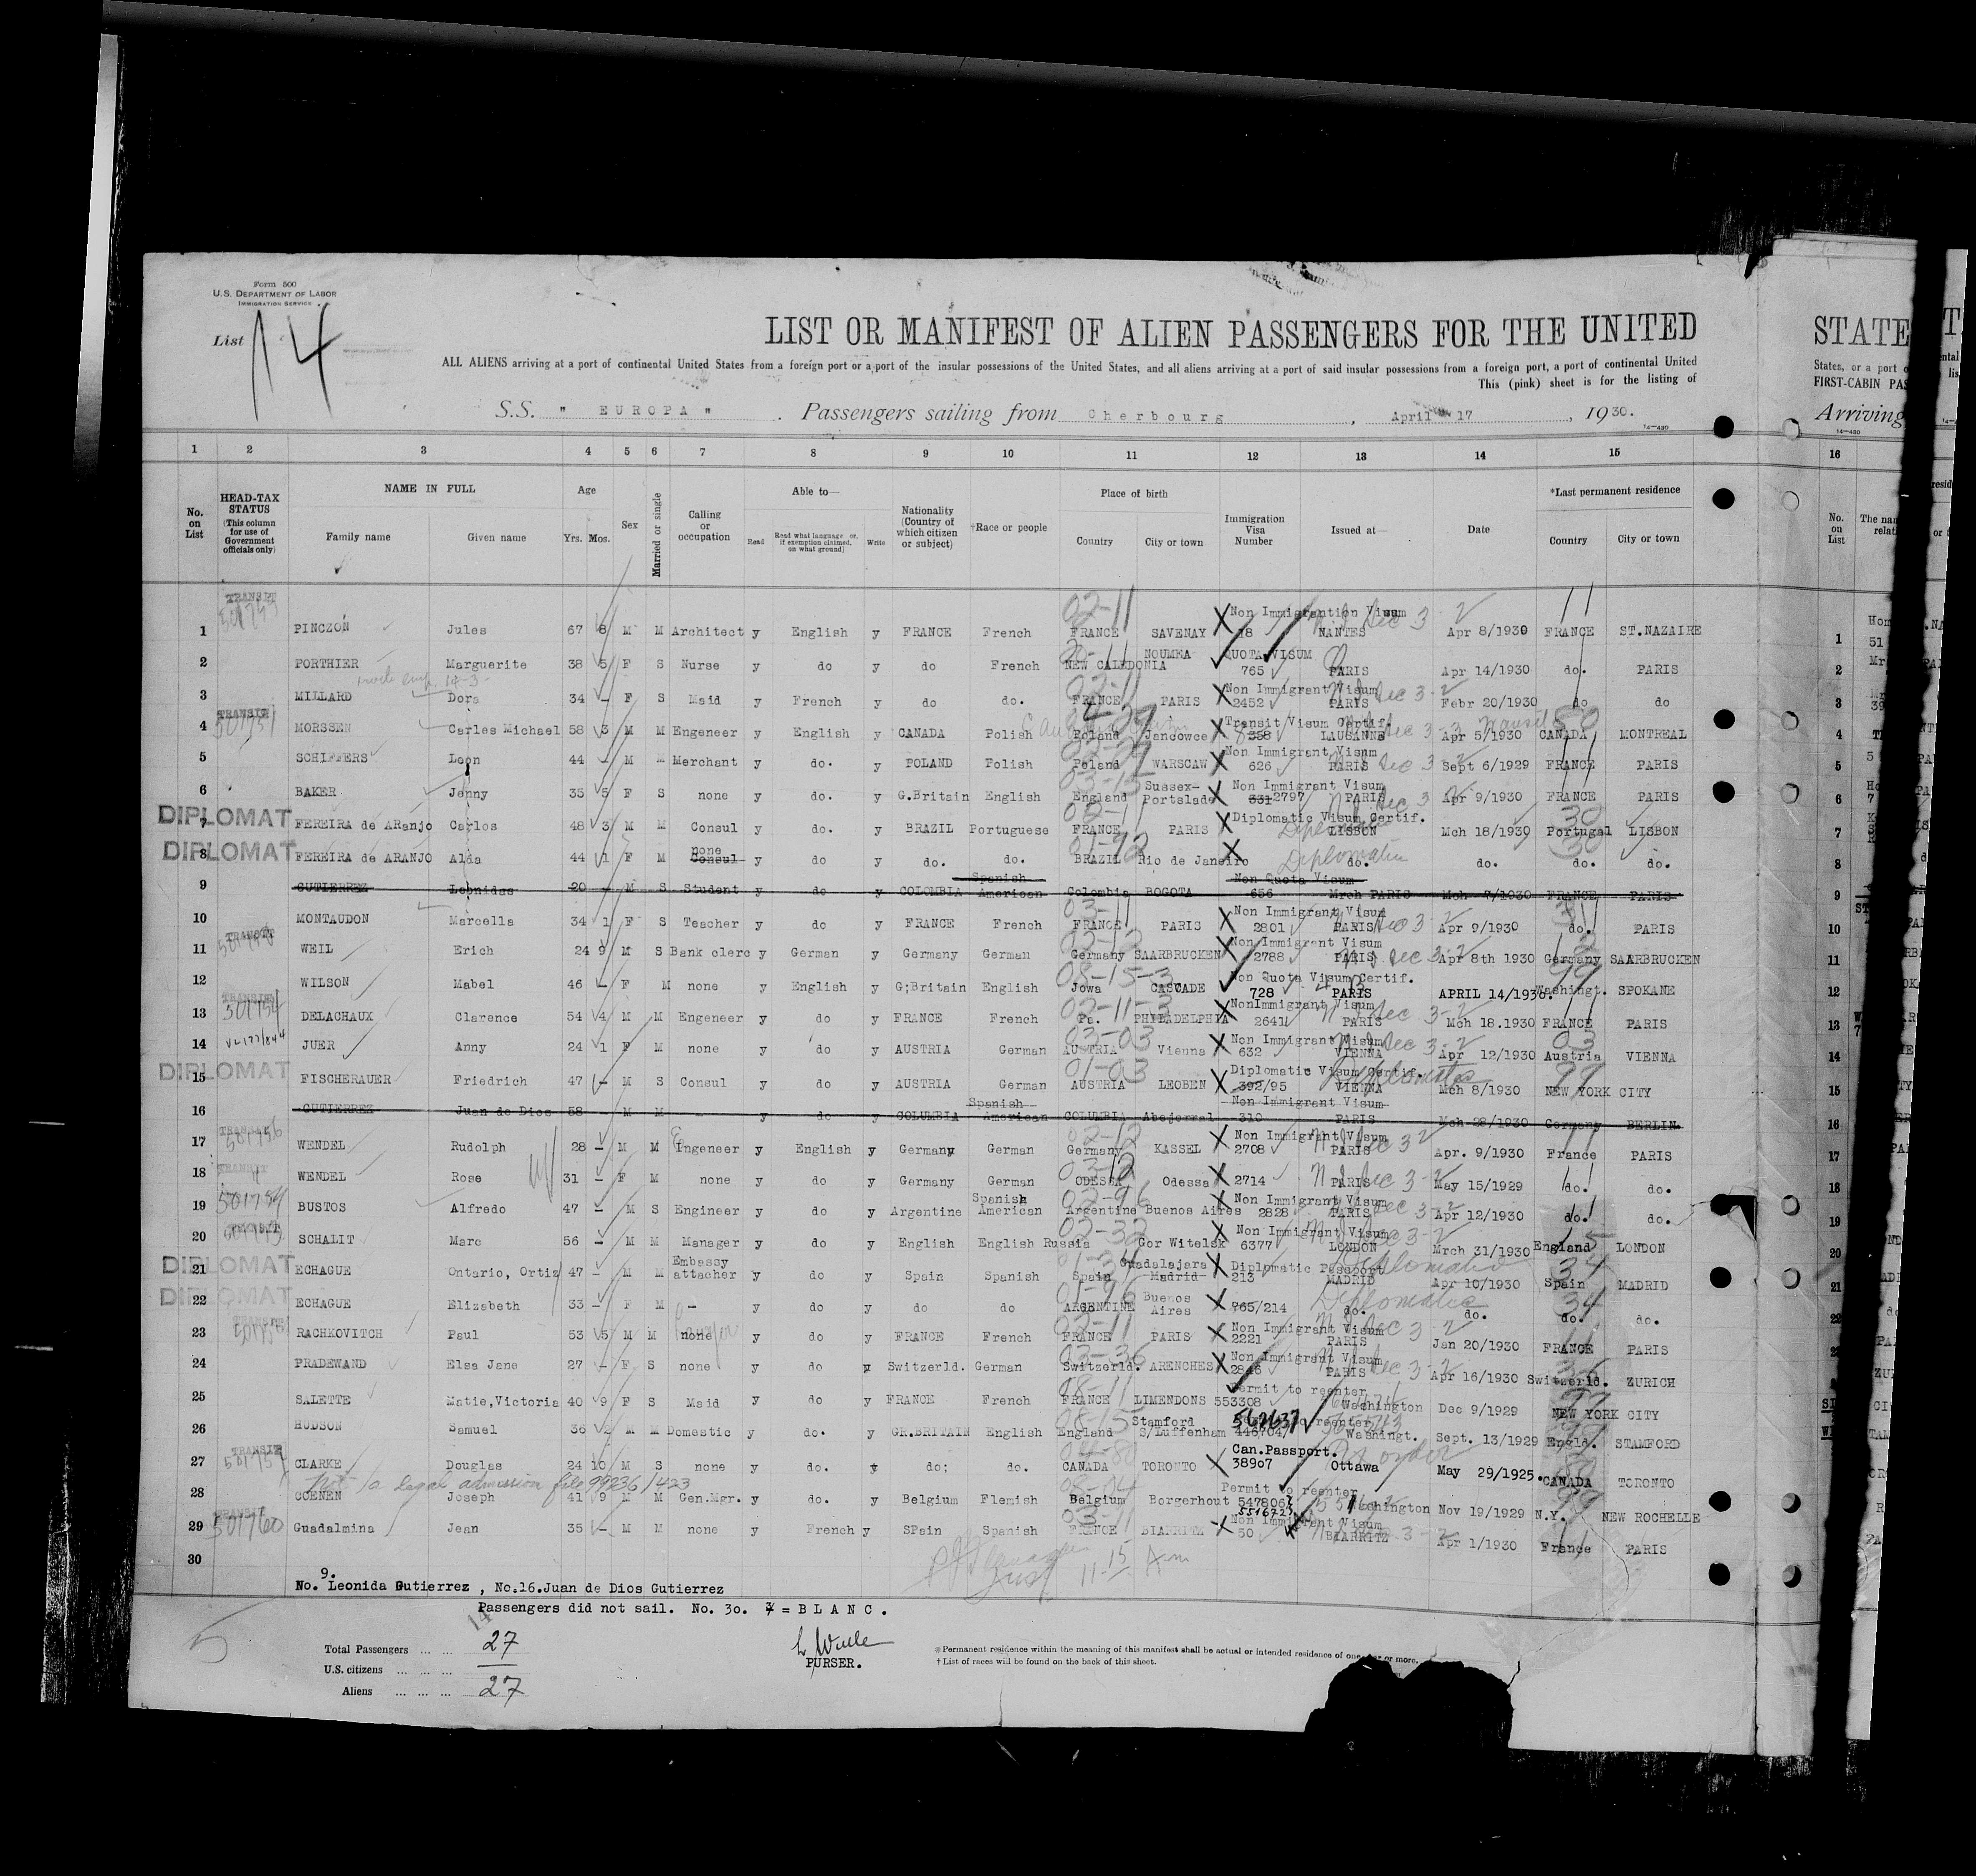 Form 500
U.S. DEPARTMENT OF LABOR
IMMIGRATION SERVICE
List 14
LIST OR MANIFEST OF ALIEN PASSENGERS FOR THE UNITED
STATE
ALL ALIENS arriving at a port of continental United States from a foreign port or a port of the insular possessions of the United States, and all aliens arriving at a port of said insular possessions from a foreign port, a port of continental United
States, or a port o
This (pink) sheet is for the listing of
FIRST-CABIN PAS
S.S. " EUROPA " . Passengers sailing from Cherbourg , April 17 , 1930.
Arriving
14-430
1 2 3 4 5 6 7 8 9 10 11 12 13 14 15 16
No. on List
HEAD-TAX STATUS (This column for use of Government officials only)
NAME IN FULL
Family name Given name
Age
Yrs. Mos.
Sex
Married or single
Calling or occupation
Able to—
Read Read what language or, if exemption claimed, on what ground) Write
Nationality (Country of which citizen or subject)
†Race or people
Place of birth
Country City or town
Immigration Visa Number
Issued at—
Date
*Last permanent residence
Country City or town
No. on List
TRANSIT Non Immigrantion Visum
1 PINCZON Jules 67 8 M M Architect y English y FRANCE French FRANCE SAVENAY 18 NANTES Apr 8/1930 FRANCE ST.NAZAIRE
NOUMEA QUOTA VISUM
2 PORTHIER Marguerite 38 5 F S Nurse y do y do French NEW CALEDONIA 765 PARIS Apr 14/1930 do. PARIS
Non Immigrant Visum
3 MILLARD Dora 34 - F S Maid y French y do do. FRANCE PARIS 2452 PARIS Febr 20/1930 do do
TRANSIT 501751 Transit Visum Certif.
4 MORSSEN Carles Michael 58 3 M M Engeneer y English y CANADA Polish Poland Jancowce 358 LAUSANNE Apr 5/1930 CANADA MONTREAL
Non Immigrant Visum
5 SCHIFFERS Leon 44 - M M Merchant y do. y POLAND Polish Poland WARSCAW 626 PARIS Sept 6/1929 FRANCE PARIS
Sussex- Non Immigrant Visum
6 BAKER Jenny 35 5 F S none y do. y G.Britain English England Portslade 331 2797 PARIS Apr 9/1930 FRANCE PARIS
DIPLOMAT Diplomatic Visum Certif.
7 FEREIRA de ARanjo Carlos 48 3 M M Consul y do. y BRAZIL Portuguese FRANCE PARIS LISBON Mch 18/1930 Portugal LISBON
DIPLOMAT none Diplomatic
8 FEREIRA de ARANJO Alda 44 1 F M Consul y do y do. do. BRAZIL Rio de Janeiro do. do. do. do.
Spanish Non Quota Visum
9 GUTIERREZ Leonidas 20 - M S Student y do y COLOMBIA American Colombia BOGOTA 656 Mrch PARIS Mch 7/1930 FRANCE PARIS
Non Immigrant Visum
10 MONTAUDON Marcella 34 1 F S Teacher y do y FRANCE French FRANCE PARIS 2801 PARIS Apr 9/1930 do. PARIS
TRANSIT Non Immigrant Visum
11 WEIL Erich 24 9 M S Bank clerc y German y Germany German Germany SAARBRUCKEN 2788 PARIS Apr 8th 1930 Germany SAARBRUCKEN
Non Quota Visum Certif.
12 WILSON Mabel 46 - F M none y English y G;Britain English Jowa CASCADE 728 PARIS APRIL 14/1930. Washingt. SPOKANE
TRANSIT 501754 NonImmigrant Visum
13 DELACHAUX Clarence 54 4 M M Engeneer y do y FRANCE French Pa. PHILADELPHIA 2641 PARIS Mch 18.1930 FRANCE PARIS
Non Immigrant Visum
14 JUER Anny 24 1 F M none y do y AUSTRIA German AUSTRIA Vienna 632 VIENNA Apr 12/1930 Austria VIENNA
DIPLOMAT Diplomatic Visum Certif.
15 FISCHERAUER Friedrich 47 - M S Consul y do y AUSTRIA German AUSTRIA LEOBEN 392/95 VIENNA Mch 8/1930 NEW YORK CITY
Spanish Non Immigrant Visum
16 GUTIERREZ Juan de Dios 58 - M M - y do y COLUMBIA American COLUMBIA Abejorral 310 PARIS Mch 28/1930 Germany BERLIN
TRANSIT 501756 Non Immigrant Visum
17 WENDEL Rudolph 28 - M M Ingeneer y English y Germany German Germany KASSEL 2708 PARIS Apr. 9/1930 France PARIS
TRANSIT
18 WENDEL Rose 31 - F M none y do y Germany German ODESSA Odessa 2714 PARIS May 15/1929 do. do.
Spanish Non Immigrant Visum
19 BUSTOS Alfredo 47 - M S Engineer y do y Argentine American Argentine Buenos Aires 2828 PARIS Apr 12/1930 do. do.
Non Immigrant Visum
20 SCHALIT Marc 56 - M M Manager y do y English English Russia Gor Witelsk 6377 LONDON Mrch 31/1930 England LONDON
DIPLOMAT Embassy Guadalajara Diplomatic Passport
21 ECHAGUE Ontario, Ortiz 47 - M M attacher y do y Spain Spanish Spain Madrid 213 MADRID Apr 10/1930 Spain MADRID
DIPLOMAT Buenos Diplomatic
22 ECHAGUE Elizabeth 33 - F M - y do y do do ARGENTINE Aires 765/214 do. do. do. do.
Non Immigrant Visum
23 RACHKOVITCH Paul 53 5 M M none y do y FRANCE French FRANCE PARIS 2221 PARIS Jan 20/1930 FRANCE PARIS
Non Immigrant Visum
24 PRADEWAND Elsa Jane 27 - F S none y do y Switzerld. German Switzerld. ARENCHES 2846 PARIS Apr 16/1930 Switzerld. ZURICH
Permit to reenter
25 SALETTE Matie,Victoria 40 9 F S Maid y do y FRANCE French FRANCE LIMENDONS 553308 Washington Dec 9/1929 NEW YORK CITY
Stamford
26 HUDSON Samuel 36 2 M M Domestic y do. y GR.BRITAIN English England S/Luffenham 446704 Washingt. Sept. 13/1929 Engld. STAMFORD
TRANSIT Can.Passport.
27 CLARKE Douglas 24 10 M S none y do. y do; do. CANADA TORONTO 38907 Ottawa May 29/1925. CANADA TORONTO
Not a legal admission file 99236/423
Permit to reenter
28 COENEN Joseph 41 9 M M Gen.Mgr. y do. y Belgium Flemish Belgium Borgerhout 547806 Washington Nov 19/1929 N.Y. NEW ROCHELLE
TRANSIT 501760 Non Immigrant Visum
29 Guadalmina Jean 35 - M M none y French y SPain Spanish FRANCE BIARRITZ 50 BIARRITZ Apr 1/1930 France PARIS
30
9.
No. Leonida Gutierrez , No.16.Juan de Dios Gutierrez
Passengers did not sail. No. 30. = BLANC.
Total Passengers ... ... 27
U.S. citizens ... ... ...
Aliens ... ... ... 27
PURSER.
*Permanent residence within the meaning of this manifest shall be actual or intended residence of one or more.
†List of races will be found on the back of this sheet.